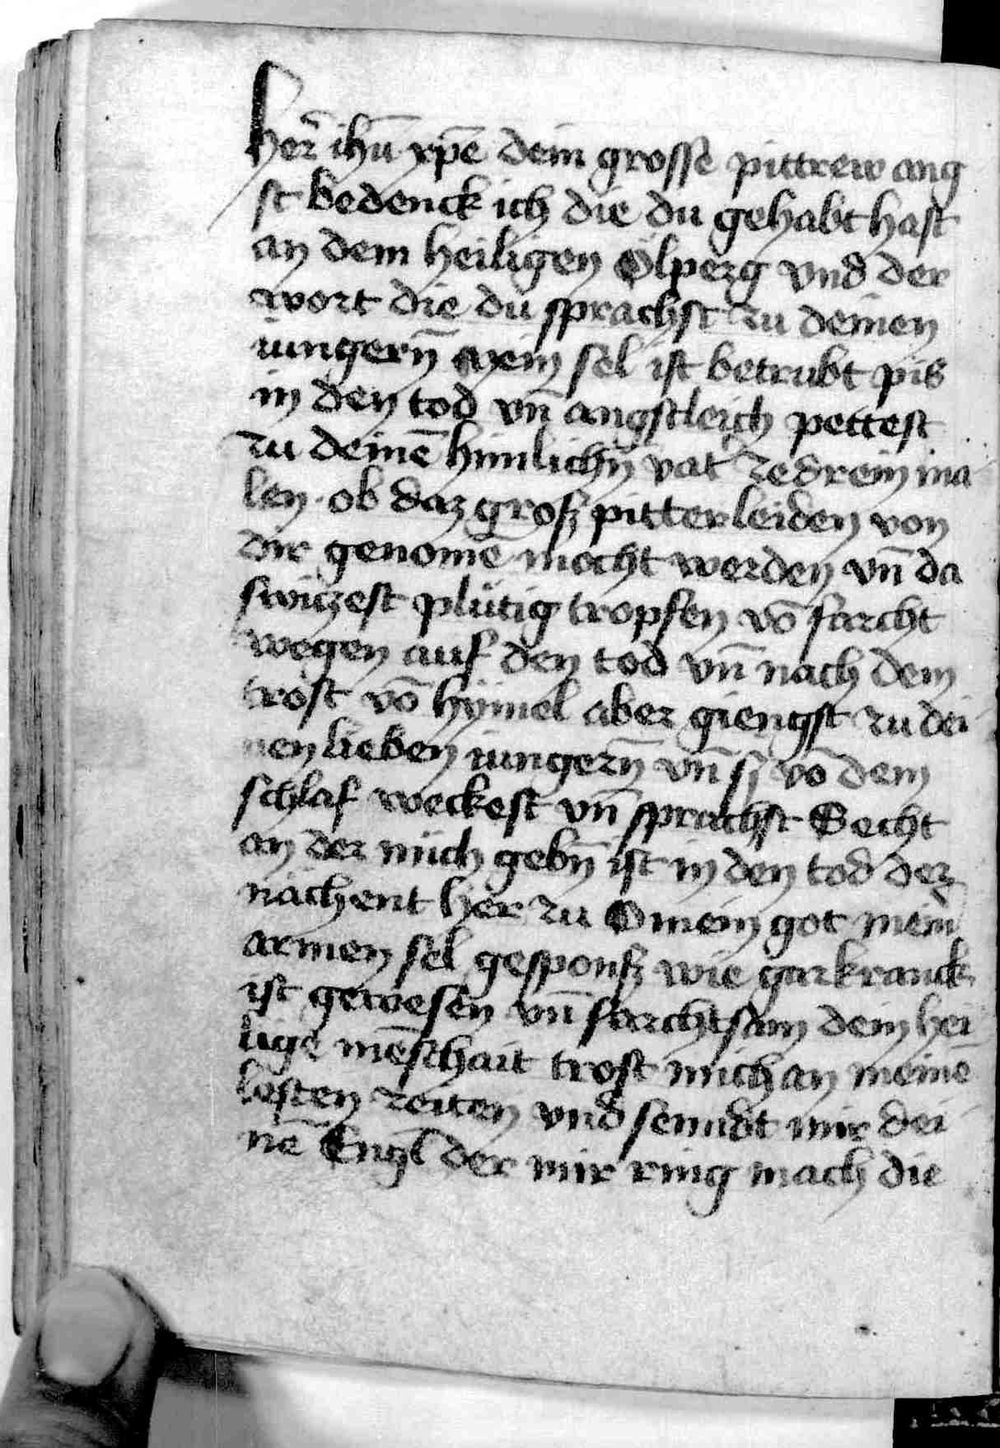 Her̄ ihū xp̄e dein grosse pittrew ang
st bedenck ich die du gehabt hast
an dem heiligen Ölperg vnd der
wort die du sprachst zu deinen
iungerñ Mein sel ist betrubt pis
in den tod vñ angstleich pettest
zu deinē himlichñ vat̄ ze drein ma
len · ob daz groß pitter leiden von
dir genomē mocht werden vñ da
swiczest plutig tropfen vō forcht
wegen auf den tod vñ nach dem
trost vō hymel aber giengst zu dei
nen lieben iungerñ vñ sy vō dem
schlaf weckest vñ sprachst Secht
an der mich gebñ ist in den tod der
nachent her zu O mein got mein̄
armen sel gesponß wie gar kranck
ist gewesen vñ forchtsam dein hei
lige mēschait trost mich an meinē
lesten zeiten vnd senndt mir dei
nē Engl der mir ring mach die